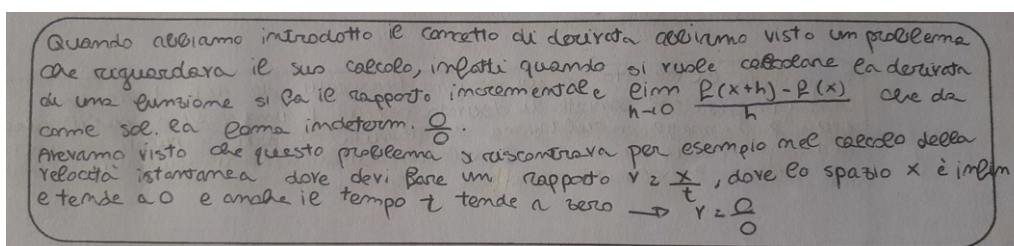 Quando abbiamo introdotto il concetto di derivata abbiamo visto un problema
che riguardava il suo calcolo, infatti quando si vuole calcolare la derivata
di una funzione si fa il rapporto incrementale lim h→0 f(x+h)-f(x)/h che da
come sol. la forma indeterm. 0/0.
Avevamo visto che questo problema si riscontrava per esempio nel calcolo della
velocità istantanea dove devi fare un rapporto v = x/t, dove lo spazio x è infin
e tende a 0 e anche il tempo t tende a zero → v = 0/0